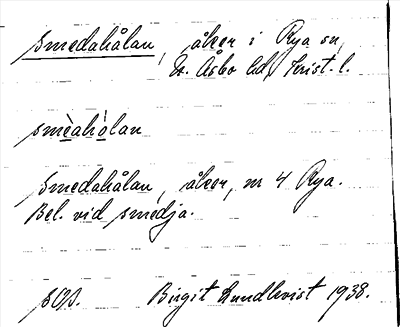 Smedahålan, åker i Rya sn,
N. Åsbo hd, Krist. l.
smèahólan
Smedahålan, åker, nr 4 Rya.
Bel. vid smedja.
Birgit Lundkvist 1938.